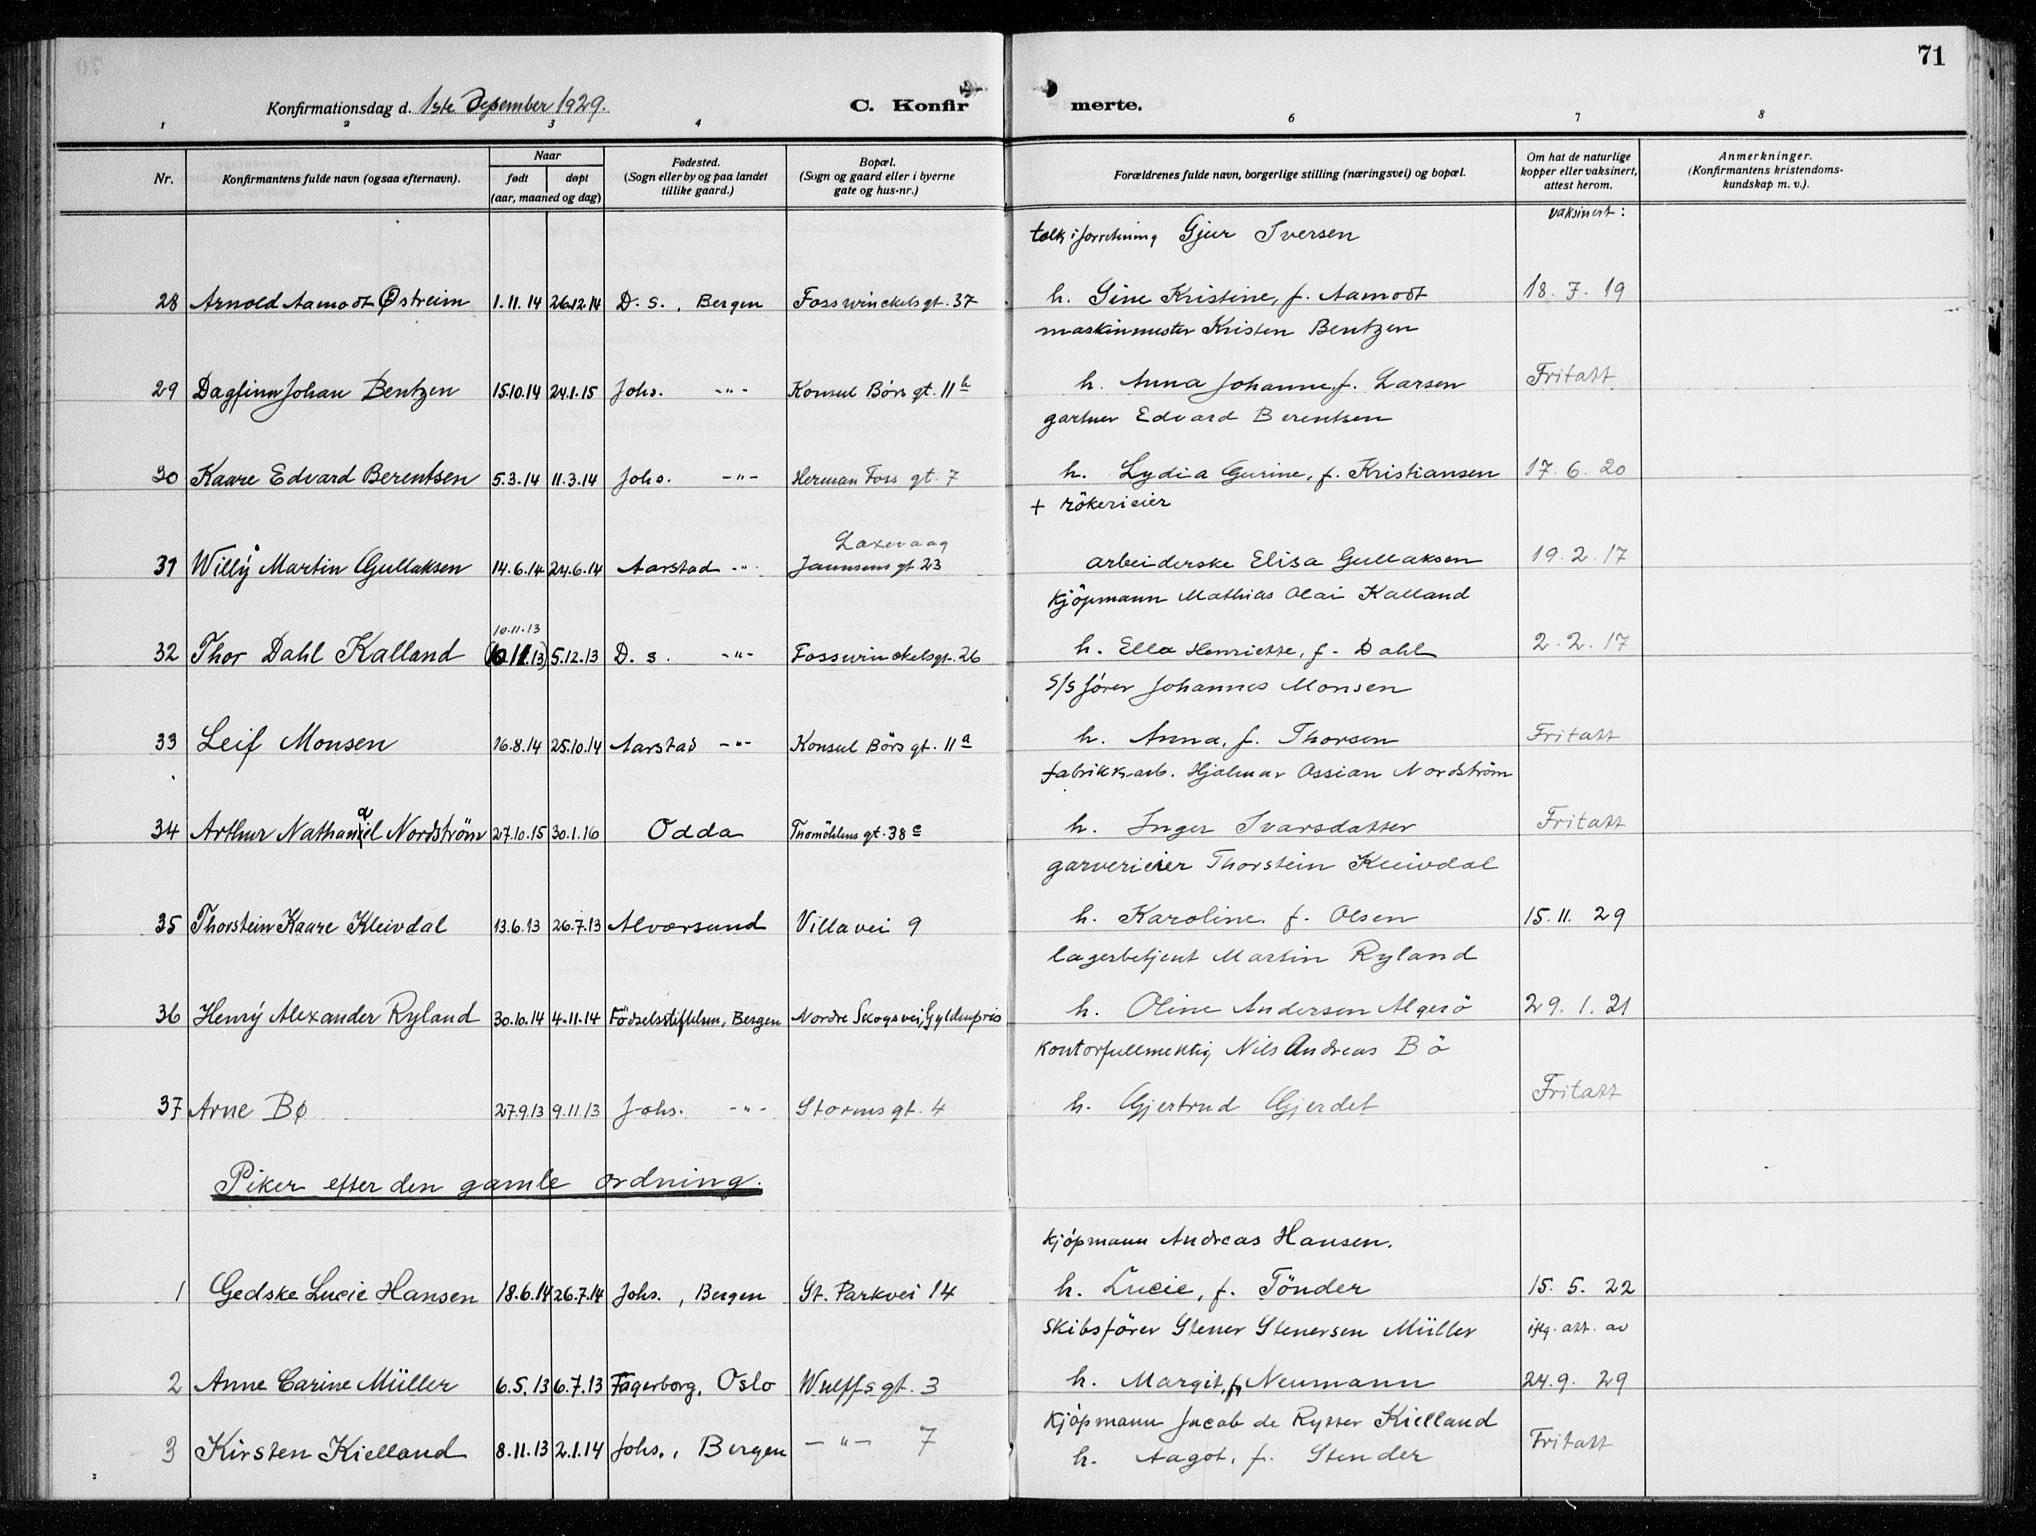 71
Konfirmationsdag d. 1ste Desember 1929.
C. Konfirmerte.
1 2 3 4 6 7 8
Nr.
Konfirmantens fulde navn (ogsaa efternavn).
Naar
født døpt
(aar, maaned og dag)
Fødested.
(Sogn eller by og paa landet
tillike gaard.)
Bopæl.
(Sogn og gaard eller i byerne
gate og hus-nr.)
Forældrenes fulde navn, borgerlige stilling (næringsvei) og bopæl.
Om hat de naturlige
kopper eller vaksinert,
attest herom.
Anmerkninger.
(Konfirmantens kristendoms-
kundskap m. v.).
vaksinert:
tolk i forretning Gjur Iversen
28 Arnold Aamodt Østreim 1.11.14 26.12.14 D. s., Bergen Fosswinckelsgt. 37 h. Gine Kristine, f. Aamodt 18. 7. 19
maskinmester Kristen Bentzen
29 Dagfinn Johan Bentzen 15.10.14 24.1.15 Johs. -"- Konsul Børs gt. 11b h. Anna Johanne, f. Larsen Fritatt
gartner Edvard Berentsen
30 Kaare Edvard Berentsen 5.3.14 11.3.14 Johs. -"- Herman Foss gt. 7 h. Lydia Gurine, f. Kristiansen 17. 6. 20
+ rökerieier
Laxevaag
31 Willy Martin Gullaksen 14.6.14 24.6.14 Aarstad -"- Jannsens gt. 23 arbeiderske Elisa Gullaksen 19. 2. 17
kjöpmann Mathias Olai Kalland
10.11.13
32 Thor Dahl Kalland (10.11.13) 5.12.13 D. s. -"- Fosswinckelsgt. 26 h. Ella Henriette, f. Dahl 2. 2. 17
S/S förer Johannes Monsen
33 Leif Monsen 16.8.14 25.10.14 Aarstad -"- Konsul Börs gt. 11a h. Anna, f. Thorsen Fritatt
fabrikkarb. Hjalmar Ossian Nordström
a
34 Arthur Nathaniel Nordström 27.10.15 30.1.16 Odda Thomöhlens gt. 38c h. Inger Ivarsdatter Fritatt
garverieier Thorstein Kleivdal
35 Thorstein Kaare Kleivdal 13.6.13 26.7.13 Alværsund Villavei 9 h. Karoline, f. Olsen 15. 11. 29
lagerbetjent Martin Ryland
36 Henry Alexander Ryland 30.10.14 4.11.14 Födselsstiftelsen, Bergen Nordre Skogsvei, Gyldenpris h. Oline Andersen Algerö 29. 1. 21
kontorfullmektig Nils Andreas Bö
37 Arne Bø 27.9.13 9.11.13 Johs. -"- Storms gt. 4 h. Gjertrud Gjerdet Fritatt
Piker efter den gamle ordning.
kjöpmann Andreas Hansen.
1 Gedske Lucie Hansen 18.6.14 26.7.14 Johs., Bergen St. Parkvei 14 h. Lucie, f. Tönder 15. 5. 22
Skibsförer Stener Stenersen Müller iflg. att. av
2 Anne Carine Müller 6.5.13 6.7.13 Fagerborg, Oslo Wulffs gt. 3 h. Margit, f. Neumann 24. 9. 29
kjöpmann Jacob de Rytter Kielland
3 Kirsten Kielland 8.11.13 2.1.14 Johs., Bergen -"- 7 h. Aagot, f. Stender Fritatt